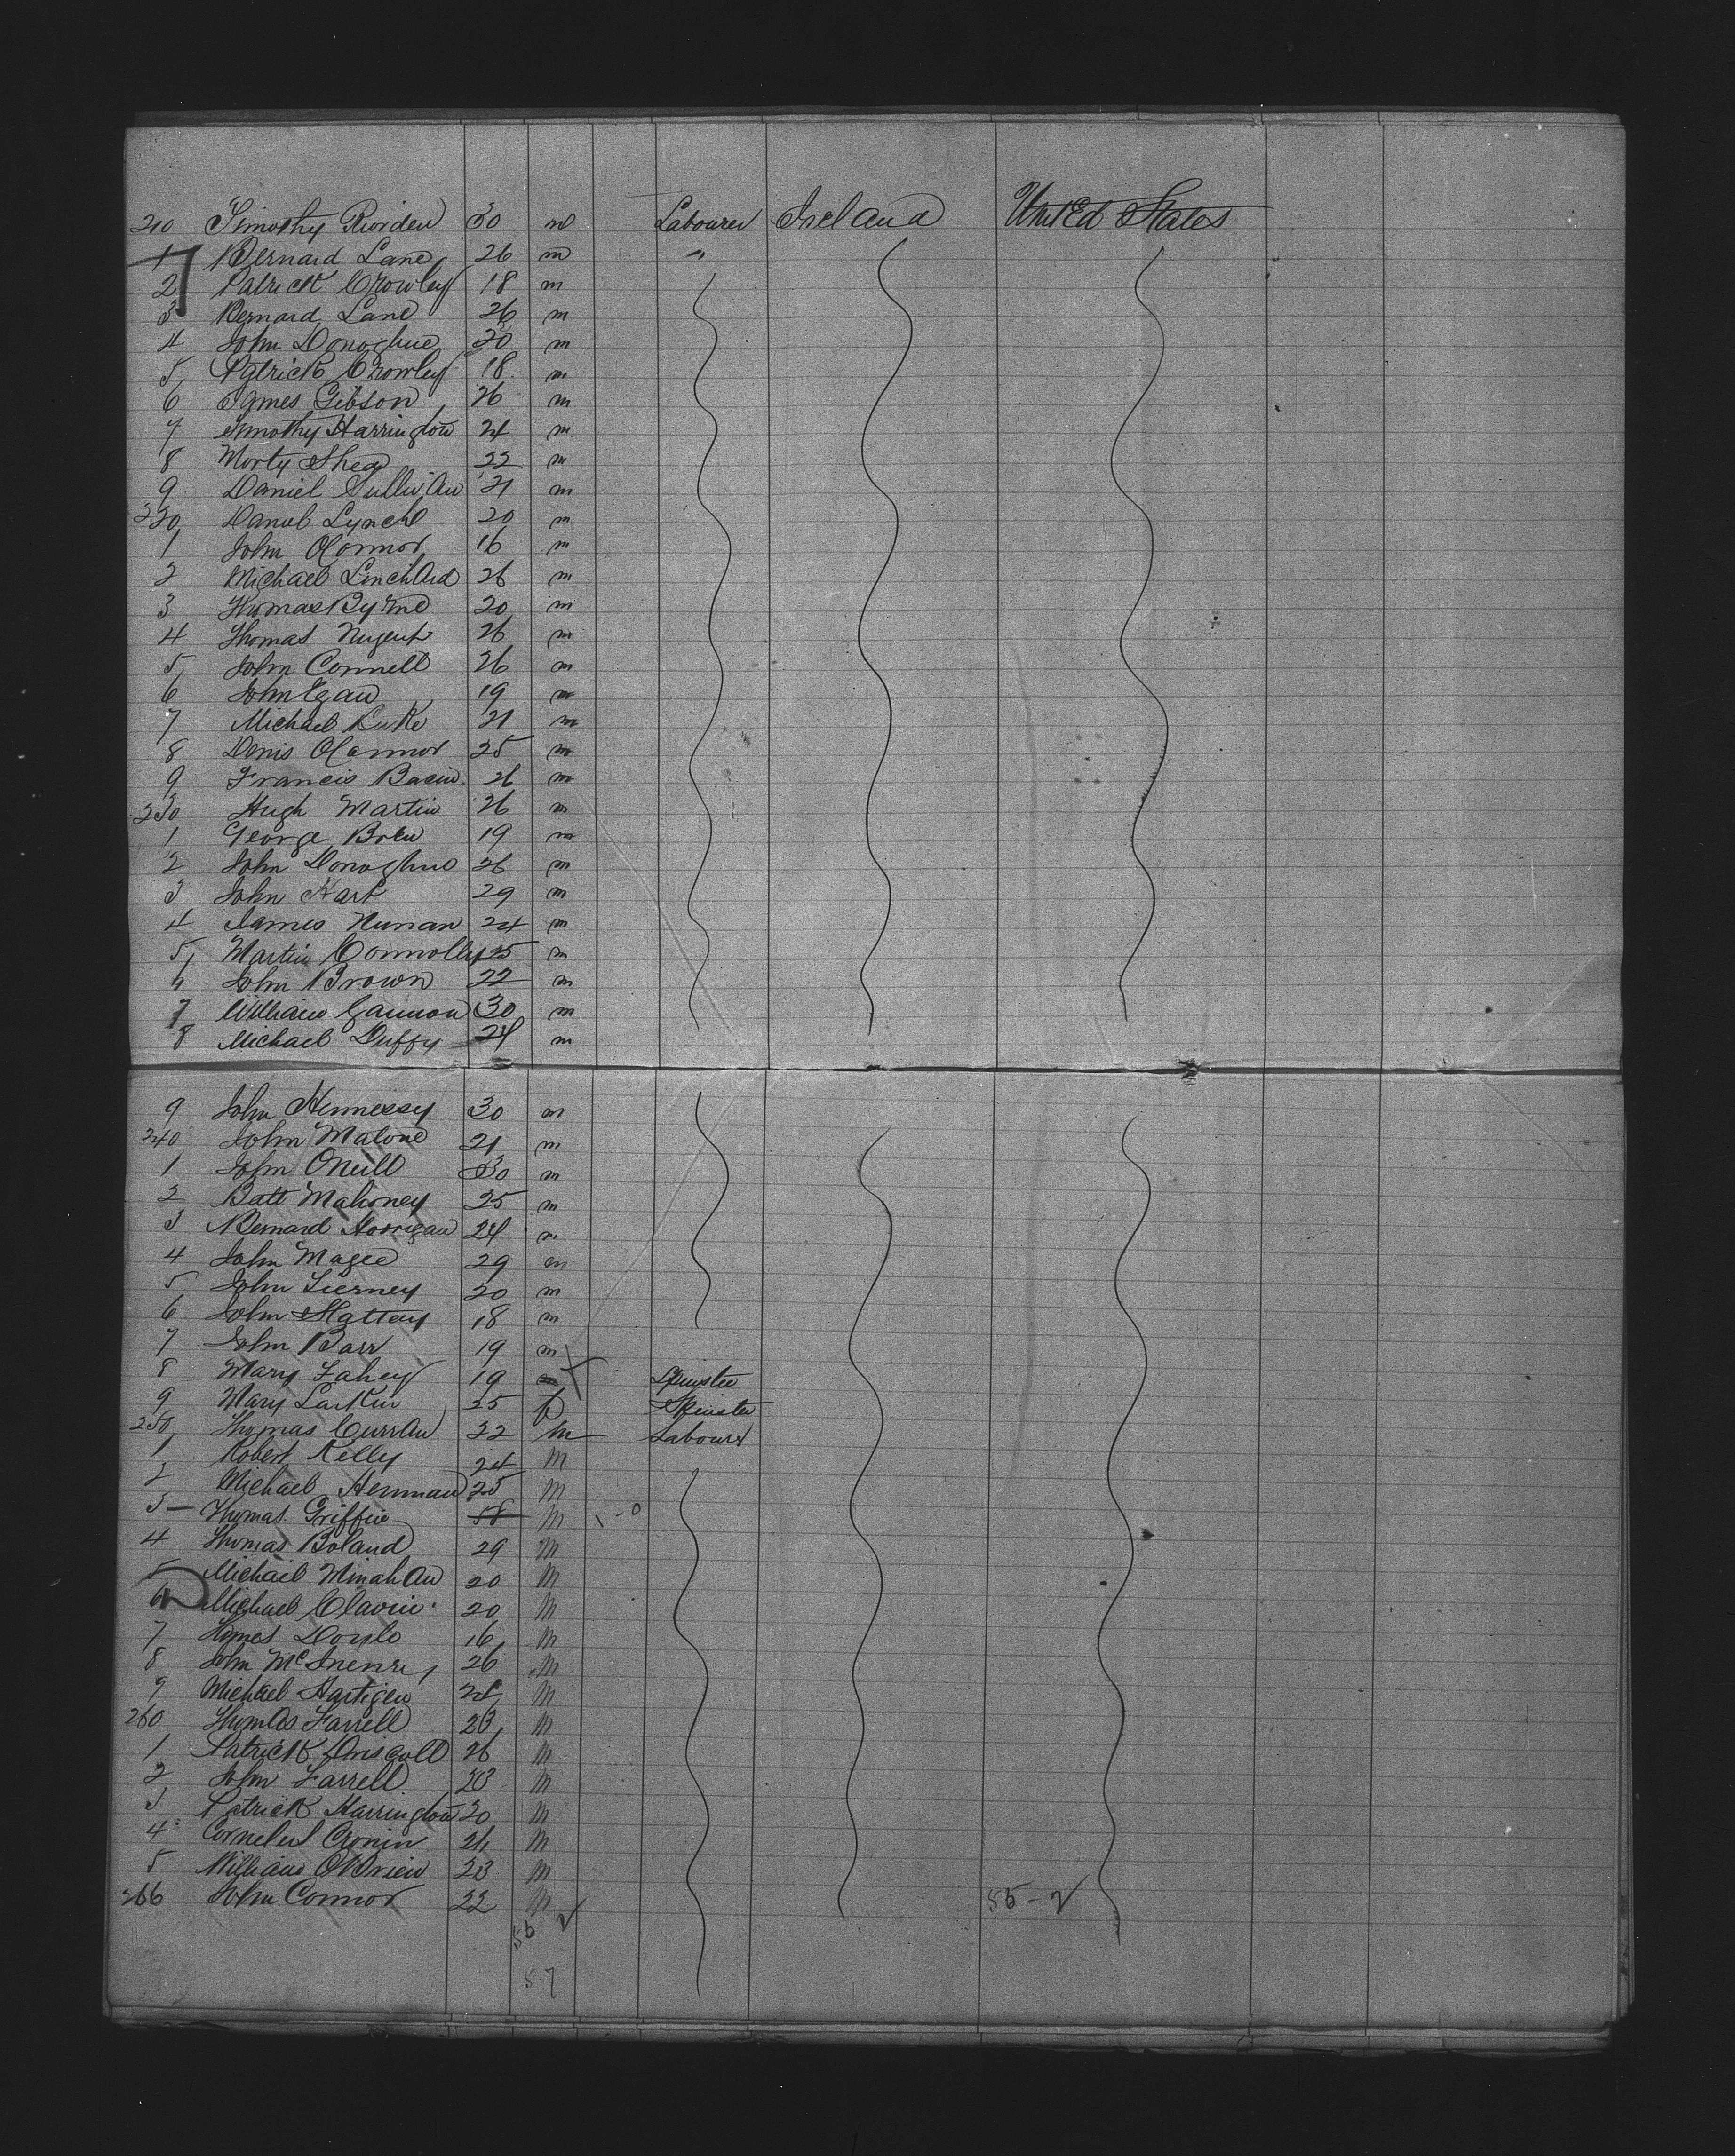 210 Timothy Riorden 30 m Labourer Ireland United States
1 Bernard Lane 26 m "
2 Patrick Crowley 18 m
3 Bernard Lane 26 m
4 John Donoghue 20 m
5 Patrick Crowley 18 m
6 James Gibson 26 m
7 Timothy Harrington 24 m
8 Morty Shea 22 m
9 Daniel Sullivan 21 m
220 Daniel Lynch 20 m
1 John OConnor 16 m
2 Michael LinchArd 26 m
3 Thomas Byrne 20 m
4 Thomas Nugent 26 m
5 John Connell 26 m
6 John Egan 19 m
7 Michael Burke 21 m
8 Denis OConnor 25 m
9 Francis 26 m
230 Hugh Martin 26 m
1 George 19 m
2 John Donoghue 26 m
3 John Hart 29 m
4 James Nunan 24 m
5 Martin Connolly 25 m
6 John Brown 22 m
7 William Gannon 30 m
8 Michael Duffy 24 m
9 John Hennessy 30 m
240 John Malone 21 m
1 John ONeill 30 m
2 Batt Mahoney 25 m
3 Bernard Horrigan 24 m
4 John Magee 29 m
5 John Tierney 20 m
6 John Slattery 18 m
7 John Barr 19 m
8 Mary Fahey 19 Spinster
9 Mary Larkin 25 f Spinster
250 Thomas Curran 22 m Labourer
1 Robert Kelly 24 M
2 Michael Hennan 25 M
3 Thomas Griffin 58 M 1-0
4 Thomas Boland 29 M
5 Michael Minahan 20 M
6 Michael Clavin 20 M
7 James Doyle 16 M
8 John McInenry 26 M
9 Michael Hartigen 24 M
260 Thomas Farrell 23 M
1 Patrick Driscoll 26 M
2 John Farrell 23 M
3 Patrick Harrington 20 M
4 Cornelius Cronin 24 M
5 William OBrien 23 M
266 John Connor 22 M 55-2
55 2
57